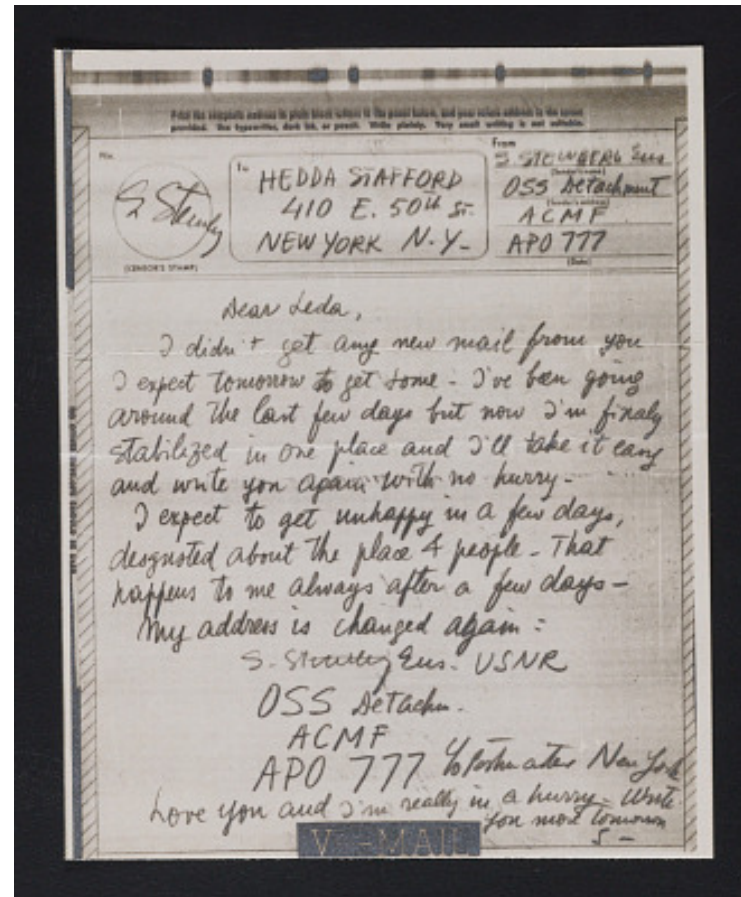 Print the complete address in plain block letters in the panel below, and your return address in the space
provided. Use typewriter, dark ink, or pencil. Write plainly. Very small writing is not suitable.
No.
To
HEDDA STAFFORD
410 E. 50th ST.
NEW YORK N.Y-
From
S. STEINBERG Ens
(Sender's name)
OSS Detachment
(Sender's address)
ACMF
APO 777
(Date)
S Steinberg
(CENSOR'S STAMP)
Dear Leda,
I didn't get any new mail from you
I expect tomorrow to get some - I've been going
around the last few days but now I'm finaly
stabilized in one place and I'll take it easy
and write you again with no hurry-
I expect to get unhappy in a few days,
desgusted about the place & people - That
happens to me always after a few days -
My address is changed again :
S. Steinberg Ens. USNR
OSS Detachm.
ACMF
APO 777 c/o Postmaster New York
Love you and I'm really in a hurry - Write
you more tomorrow
S -
V-MAIL